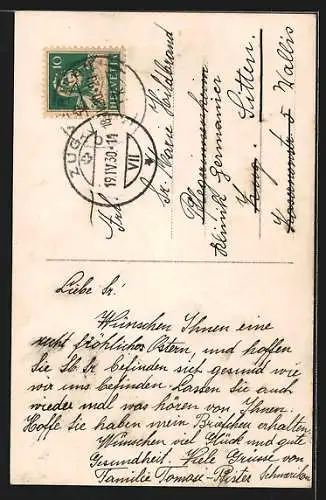 10
HELVETIA
ZUG 1
19.IV.30.-14
VII
Frl.
Sr. Marie Hildbrand
Pflegerinnenheim
Klinik Germanier
Zug. Sitten.
Wallis
Liebe Sr.!
Wünschen Ihnen eine
recht fröhliches Ostern, und hoffen
Sie Lb. Sr. befinden sich gesund wie
wir uns befinden. Lassen Sie auch
wieder mal was hören von Ihnen.
Hoffe Sie haben mein Briefchen erhalten.
Wünschen viel Glück und gute
Gesundheit. Viele Grüsse von
Familie Tomasi-Pfister